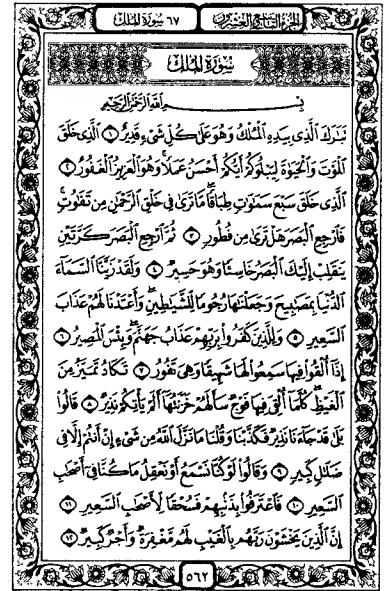 الجزء التاسع والعشرون ٦٧ سورة الملك
سورة الملك
بسم الله الرحمن الرحيم
تَبَٰرَكَ ٱلَّذِى بِيَدِهِ ٱلْمُلْكُ وَهُوَ عَلَىٰ كُلِّ شَىْءٍ قَدِيرٌ ١ ٱلَّذِى خَلَقَ
ٱلْمَوْتَ وَٱلْحَيَوٰةَ لِيَبْلُوَكُمْ أَيُّكُمْ أَحْسَنُ عَمَلًا ۚ وَهُوَ ٱلْعَزِيزُ ٱلْغَفُورُ ٢
ٱلَّذِى خَلَقَ سَبْعَ سَمَٰوَٰتٍ طِبَاقًا ۖ مَّا تَرَىٰ فِى خَلْقِ ٱلرَّحْمَٰنِ مِن تَفَٰوُتٍ ۖ
فَٱرْجِعِ ٱلْبَصَرَ هَلْ تَرَىٰ مِن فُطُورٍ ٣ ثُمَّ ٱرْجِعِ ٱلْبَصَرَ كَرَّتَيْنِ
يَنقَلِبْ إِلَيْكَ ٱلْبَصَرُ خَاسِئًا وَهُوَ حَسِيرٌ ٤ وَلَقَدْ زَيَّنَّا ٱلسَّمَآءَ
ٱلدُّنْيَا بِمَصَٰبِيحَ وَجَعَلْنَٰهَا رُجُومًا لِّلشَّيَٰطِينِ ۖ وَأَعْتَدْنَا لَهُمْ عَذَابَ
ٱلسَّعِيرِ ٥ وَلِلَّذِينَ كَفَرُوا۟ بِرَبِّهِمْ عَذَابُ جَهَنَّمَ ۖ وَبِئْسَ ٱلْمَصِيرُ ٦
إِذَآ أُلْقُوا۟ فِيهَا سَمِعُوا۟ لَهَا شَهِيقًا وَهِىَ تَفُورُ ٧ تَكَادُ تَمَيَّزُ مِنَ
ٱلْغَيْظِ ۖ كُلَّمَآ أُلْقِىَ فِيهَا فَوْجٌ سَأَلَهُمْ خَزَنَتُهَآ أَلَمْ يَأْتِكُمْ نَذِيرٌ ٨ قَالُوا۟
بَلَىٰ قَدْ جَآءَنَا نَذِيرٌ فَكَذَّبْنَا وَقُلْنَا مَا نَزَّلَ ٱللَّهُ مِن شَىْءٍ إِنْ أَنتُمْ إِلَّا فِى
ضَلَٰلٍ كَبِيرٍ ٩ وَقَالُوا۟ لَوْ كُنَّا نَسْمَعُ أَوْ نَعْقِلُ مَا كُنَّا فِىٓ أَصْحَٰبِ
ٱلسَّعِيرِ ١٠ فَٱعْتَرَفُوا۟ بِذَنۢبِهِمْ فَسُحْقًا لِّأَصْحَٰبِ ٱلسَّعِيرِ ١١
إِنَّ ٱلَّذِينَ يَخْشَوْنَ رَبَّهُم بِٱلْغَيْبِ لَهُم مَّغْفِرَةٌ وَأَجْرٌ كَبِيرٌ ١٢
٥٦٢